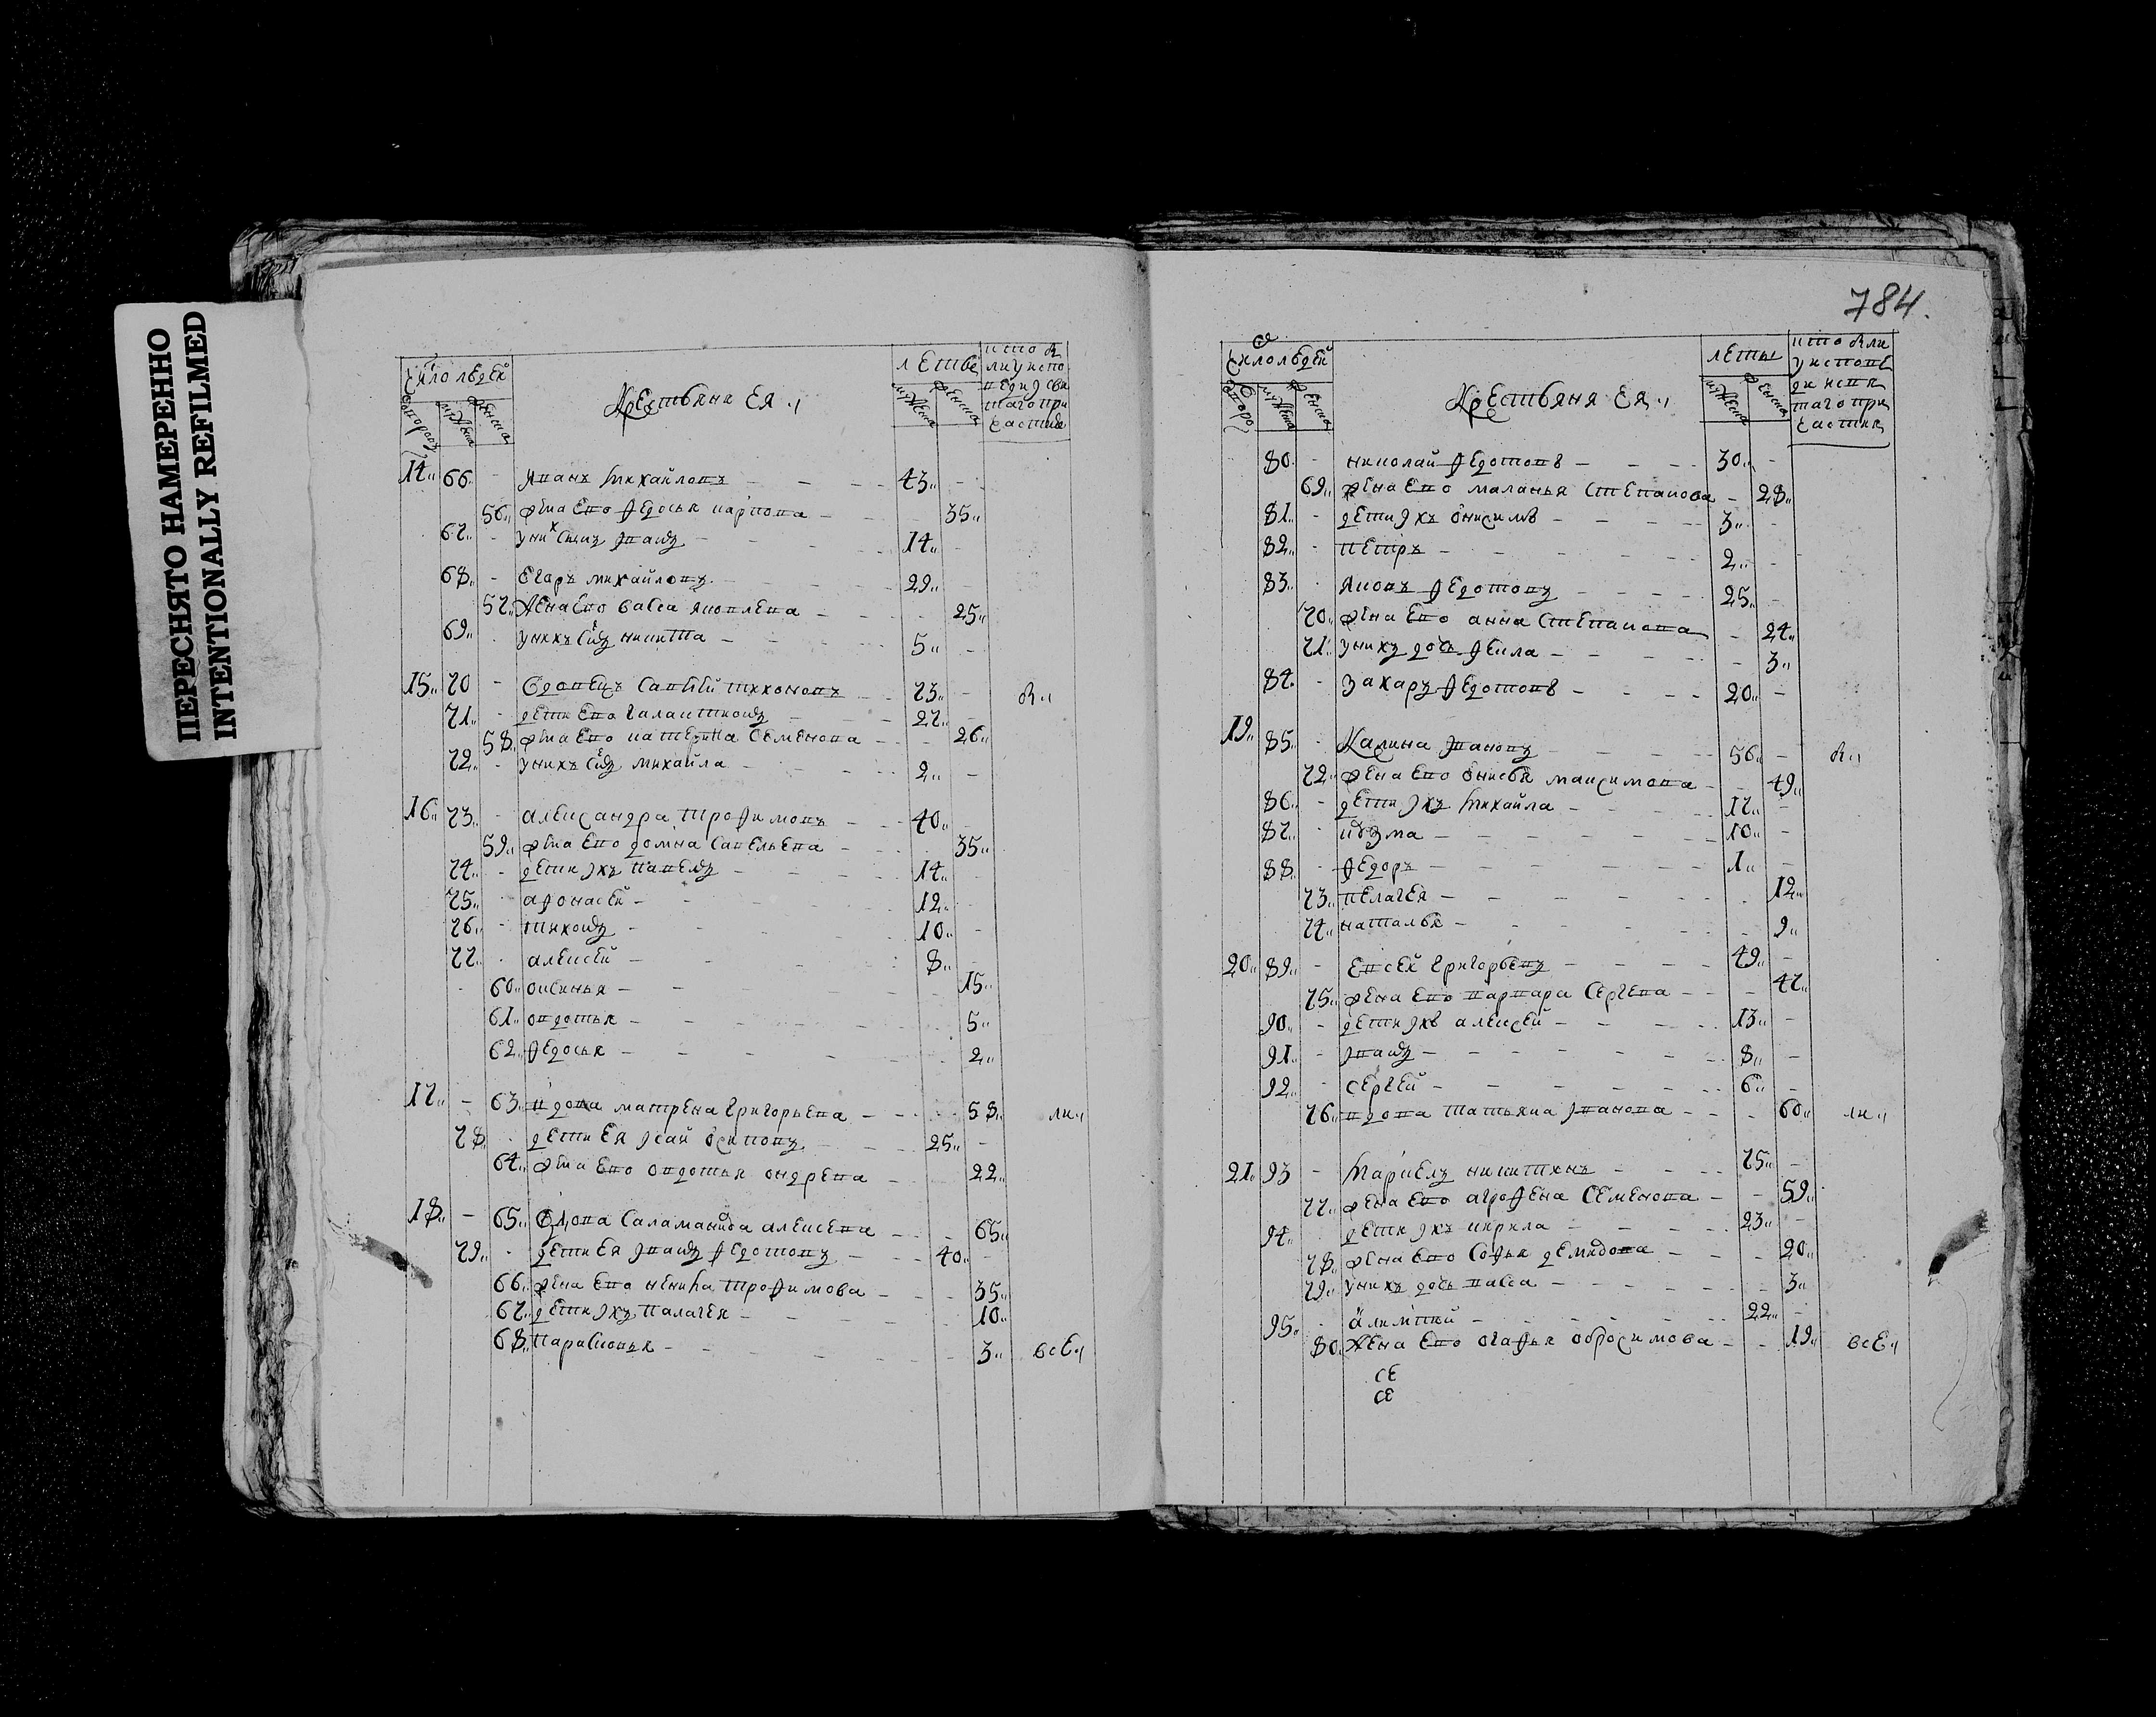 ПЕРЕСНЯТО НАМЕРЕННО
INTENTIONALLY REFILMED
784.
число людей
Крестьяня ея
лета
дворов мужеска женска
мужеска женска
14 66 Иванъ Михайловъ 43
56 жена ево Федосья Карпова 35
67 у них сынъ Иванъ 14
68 Егаръ Михайловъ 29
57 жена ево васса Яковлева 25
69 у нихъ сынъ никита 5
15 70 вдовецъ Савелей Тихоновъ 73
71 дети ево Галактионъ 27
58 жена ево катерина Семенова 26
72 у нихъ сынъ михайла 2
16 73 александра трофимовъ 40
59 жена ево домна Савельева 35
74 дети ихъ Павелъ 14
75 афонасей 12
76 тихонъ 10
77 алексей 8
60 оксинья 15
61 овдотья 5
62 федосья 2
17 63 вдова матрена Григорьева 58
78 дети ея Исай Осиповъ 25
64 жена ево овдотья ондрева 22
18 65 вдова Саламанида алексева 65
79 дети ея Иванъ Федотовъ 40
66 жена ево ненила трофимова 35
67 дети ихъ палагея 10
68 парасковья 3 все
число людей
Крестьяня ея
леты
мужеска женска
мужеска женска
80 николай Федотовъ 30
69 жена ево маланья Степанова 28
81 дети ихъ Онисимъ 3
82 петръ 2
83 Яковъ Федотовъ 25
70 жена ево анна Степанова 24
71 у нихъ дочь Фекла 3
84 Захаръ Федотовъ 20
19 85 Калина Ивановъ 56
72 жена ево Онисья максимова 49
86 дети ихъ Михайла 17
87 кузма 10
88 Федоръ 1
73 пелагея 12
74 наталья 9
20 89 Евсей Григорьевъ 49
75 жена ево варвара Сергева 47
90 дети ихъ алексей 13
91 Иванъ 8
92 сергей 6
76 вдова татьяна Иванова 60
21 93 Маркелъ никитинъ 75
77 жена ево агрофена Семенова 59
94 дети ихъ кирила 23
78 жена ево Софья демидова 20
79 у нихъ дочь васса 3
95 алимпий 22
80 жена ево огафья обросимова 19 все